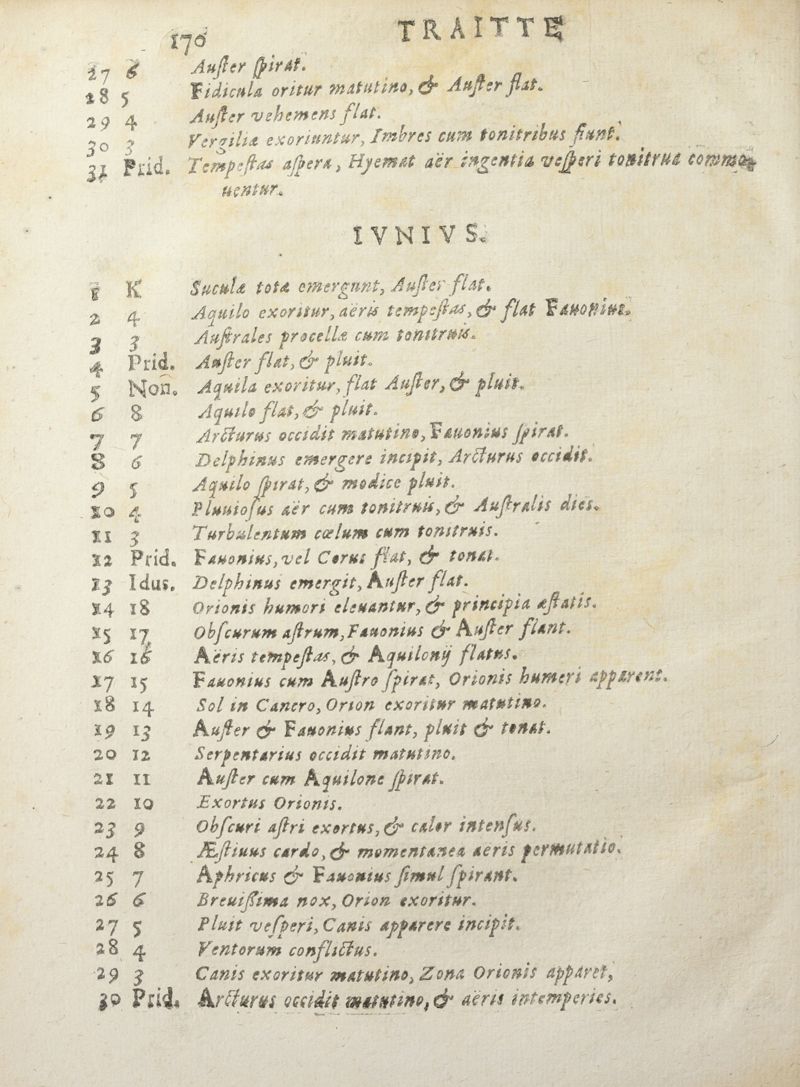 170 TRAITTE
27 6 Auſter ſpirat.
28 5 Fidicula oritur matutino, & Auſter flat.
29 4 Auſter vehemens flat.
30 3 Vergiliæ exoriuntur, Imbres cum tonitribus fiunt.
31 Prid. Tempeſtas aſpera, Hyemat aër ingentia veſperi tonitrua commo-
uentur.
IVNIVS.
1 K Suculæ totæ emergunt, Auſter flat.
2 4 Aquilo exoritur, aëris tempeſtas, & flat Fauonius.
3 3 Auſtrales procellæ cum tonitruis.
4 Prid. Auſter flat, & pluit.
5 Non. Aquila exoritur, flat Auſter, & pluit.
6 8 Aquilo flat, & pluit.
7 7 Arcturus occidit matutino, Fauonius ſpirat.
8 6 Delphinus emergere incipit, Arcturus occidit.
9 5 Aquilo ſpirat, & modice pluit.
10 4 Pluuioſus aër cum tonitruis, & Auſtralis dies.
11 3 Turbulentum cœlum cum tonitruis.
12 Prid. Fauonius, vel Corus flat, & tonat.
13 Idus. Delphinus emergit, Auſter flat.
14 18 Orionis humori eleuantur, & principia æſtatis.
15 17 Obſcurum aſtrum, Fauonius & Auſter flant.
16 16 Aëris tempeſtas, & Aquilonij flatus.
17 15 Fauonius cum Auſtro ſpirat, Orionis humeri apparent.
18 14 Sol in Cancro, Orion exoritur matutino.
19 13 Auſter & Fauonius flant, pluit & tonat.
20 12 Serpentarius occidit matutino.
21 11 Auſter cum Aquilone ſpirat.
22 10 Exortus Orionis.
23 9 Obſcuri aſtri exortus, & calor intenſus.
24 8 Æſtiuus cardo, & momentanea aeris permutatio.
25 7 Aphricus & Fauonius ſimul ſpirant.
26 6 Breuiſſima nox, Orion exoritur.
27 5 Pluit veſperi, Canis apparere incipit.
28 4 Ventorum conflictus.
29 3 Canis exoritur matutino, Zona Orionis apparet,
30 Prid. Arcturus occidit matutino, & aëris intemperies.